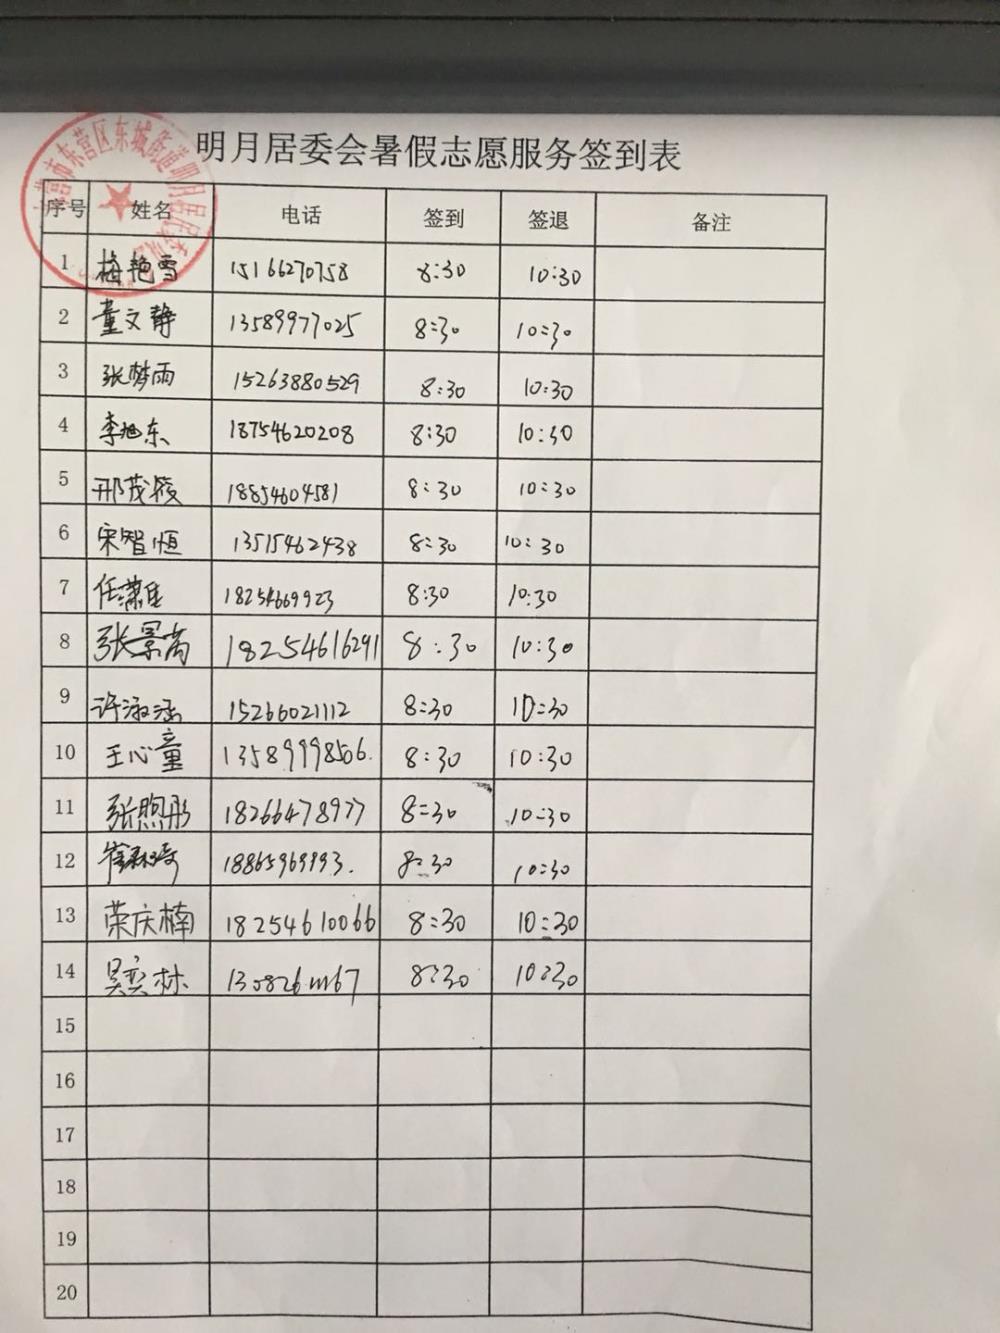 明月居委会暑假志愿服务签到表
序号 姓名 电话 签到 签退 备注
1 梅艳雪 15166270758 8:30 10:30
2 董文静 13589977025 8:30 10:30
3 张梦雨 15263880529 8:30 10:30
4 李旭东 18754620208 8:30 10:30
5 邢茂筱 18854604581 8:30 10:30
6 宋智恒 13515462438 8:30 10:30
7 任潇佳 18254669923 8:30 10:30
8 张景芮 18254616291 8:30 10:30
9 许淑涵 15266021112 8:30 10:30
10 王心童 13589998506. 8:30 10:30
11 张煦彤 18266478977 8:30 10:30
12 18865969993. 8:30 10:30
13 荣庆楠 18254610066 8:30 10:30
14 吴奕林 8:30 10:30
15
16
17
18
19
20